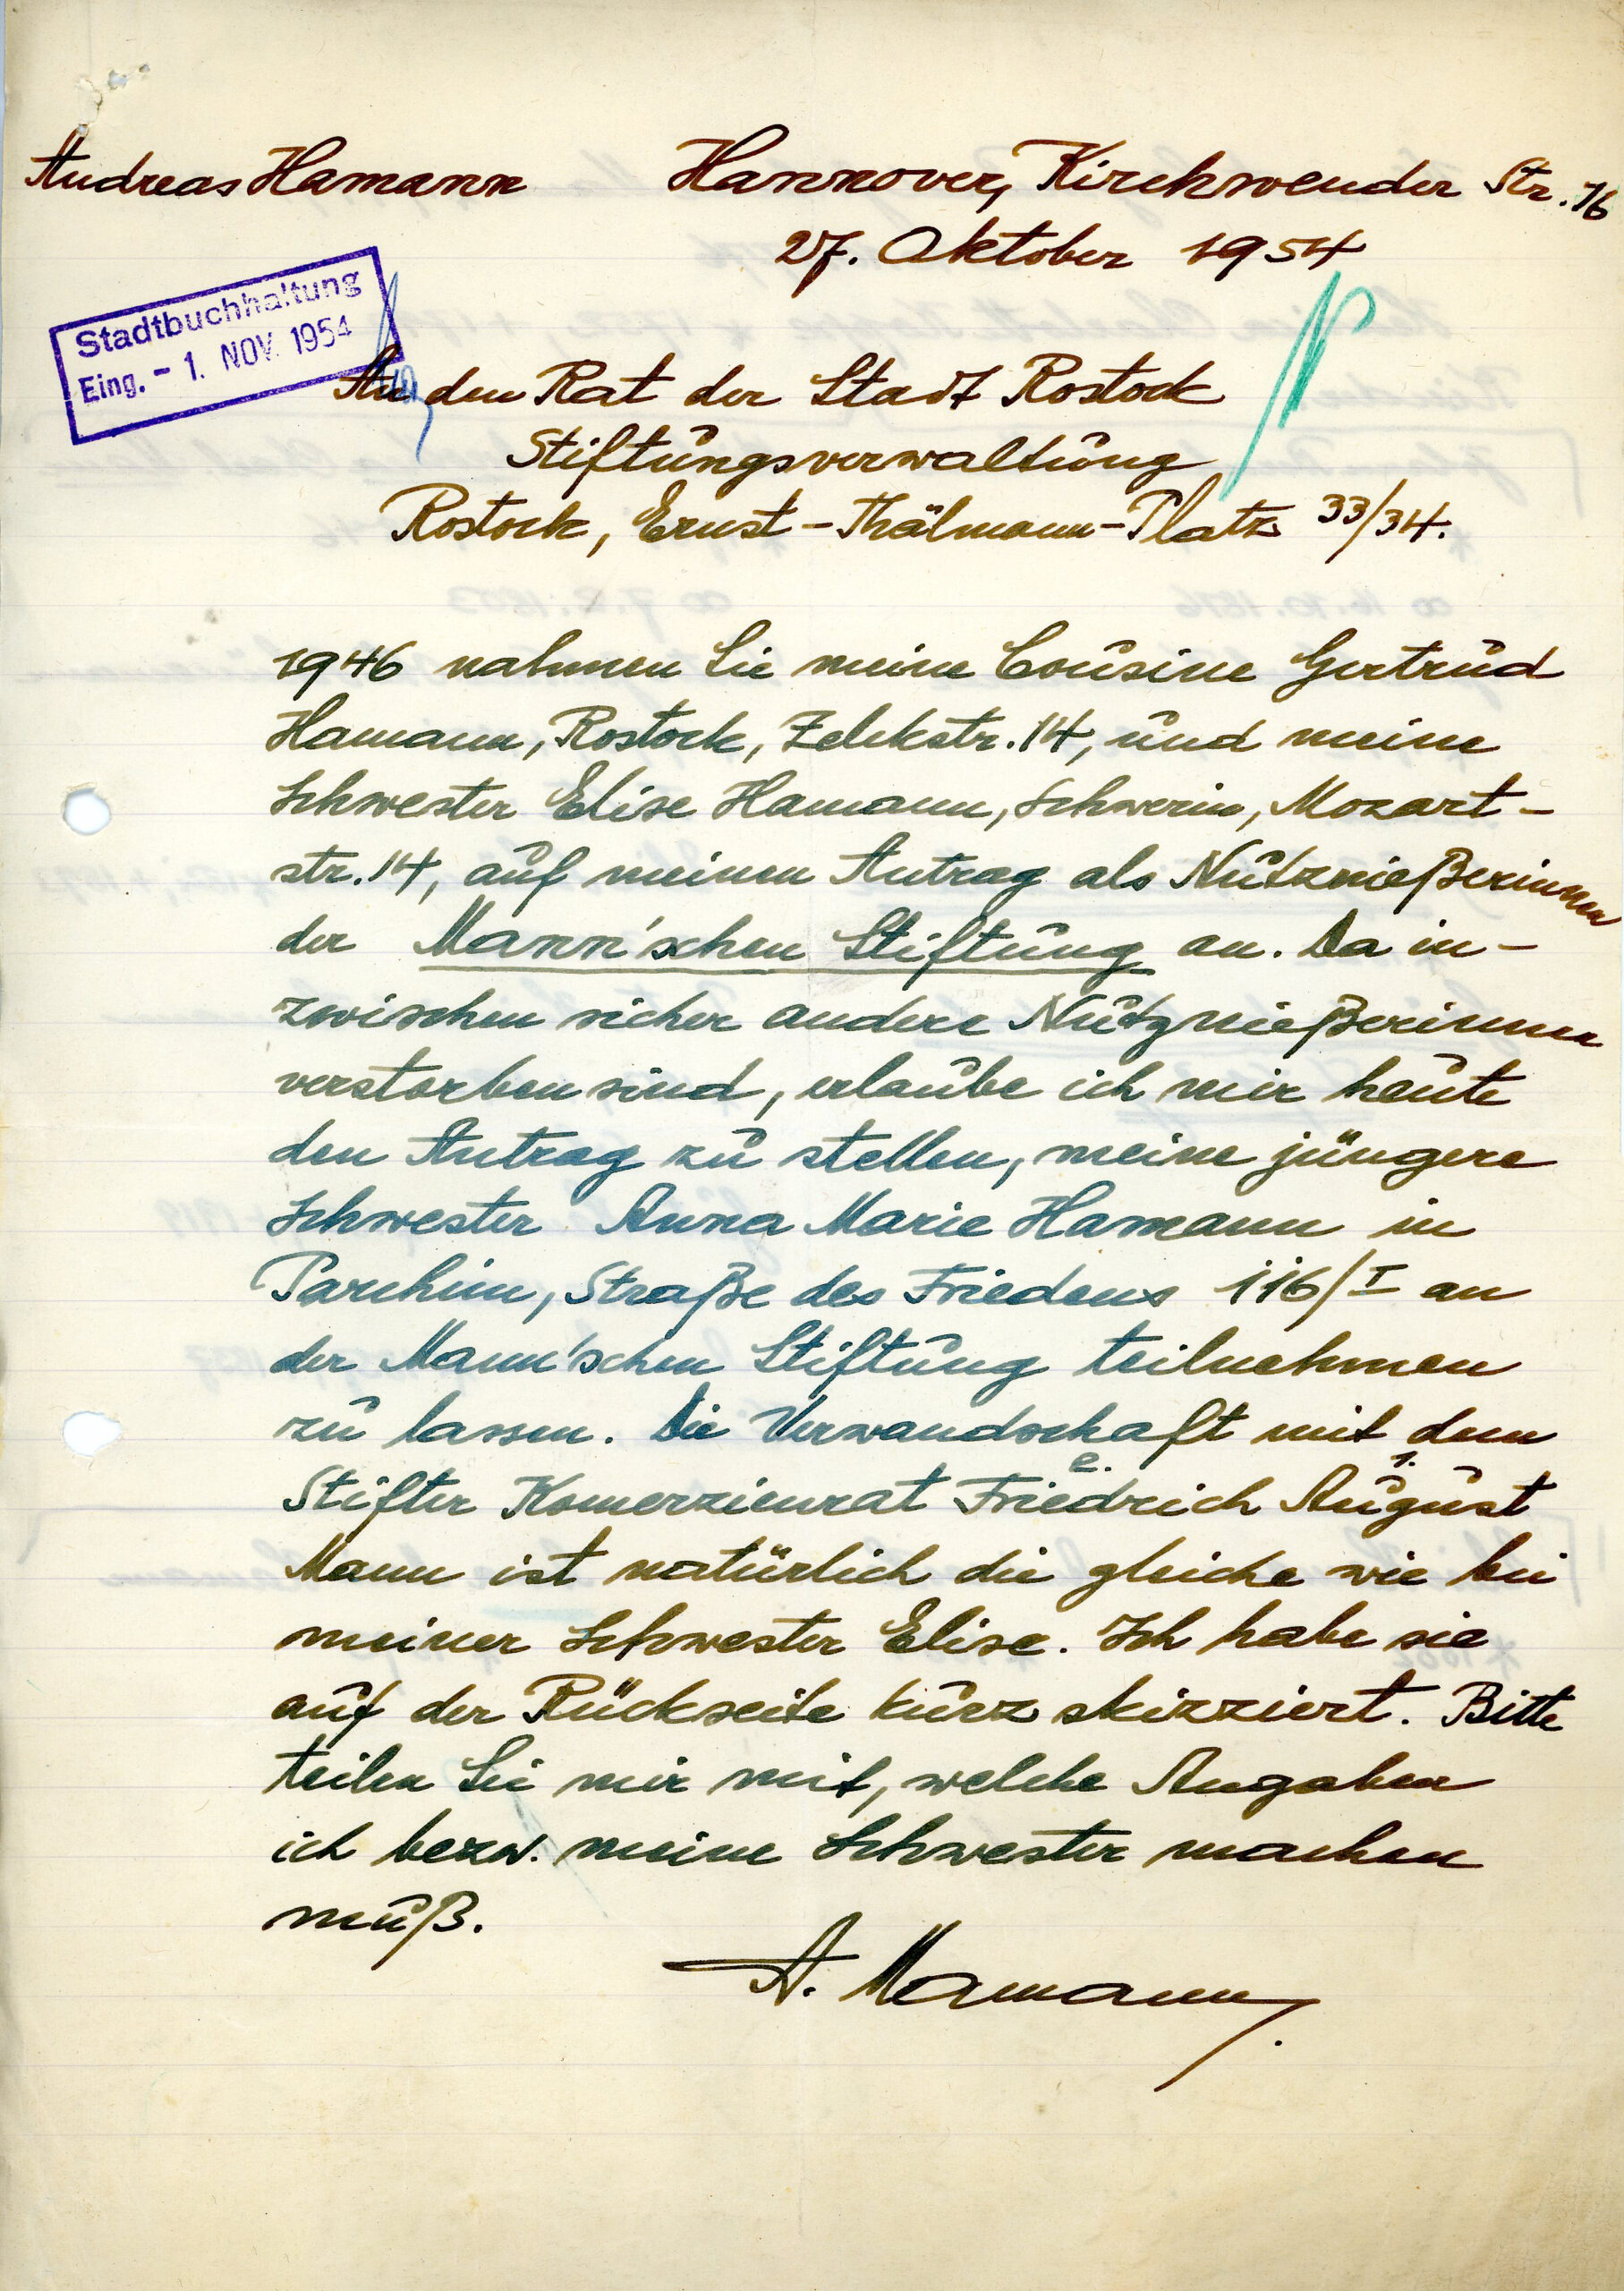 Andreas Hamann Hannover, Kirchwender Str. 16
27. Oktober 1954
Stadtbuchhaltung
Eing. - 1. NOV. 1954
An den Rat der Stadt Rostock
Stiftungsverwaltung
Rostock, Ernst-Thälmann-Platz 33/34.
1946 nahmen Sie meine Cousine Gertrud
Hamann, Rostock, Zelckstr. 14, und meine
Schwester Elise Hamann, Schwerin, Mozart-
str. 14, auf meinen Antrag als Nutznießerinnen
der Mann'schen Stiftung an. Da in-
zwischen sicher andere Nutznießerinnen
verstorben sind, erlaube ich mir heute
den Antrag zu stellen, meine jüngere
Schwester Anna Marie Hamann in
Parchim, Straße des Friedens 116/I an
der Mann'schen Stiftung teilnehmen
zu lassen. Die Verwandschaft mit dem
2. 1.
Stifter Komerzienrat Friedrich August
Mann ist natürlich die gleiche wie bei
meiner Schwester Elise. Ich habe sie
auf der Rückseite kurz skizziert. Bitte
teilen Sie mir mit, welche Angaben
ich bezw. meine Schwester machen
muß.
A. Hamann.